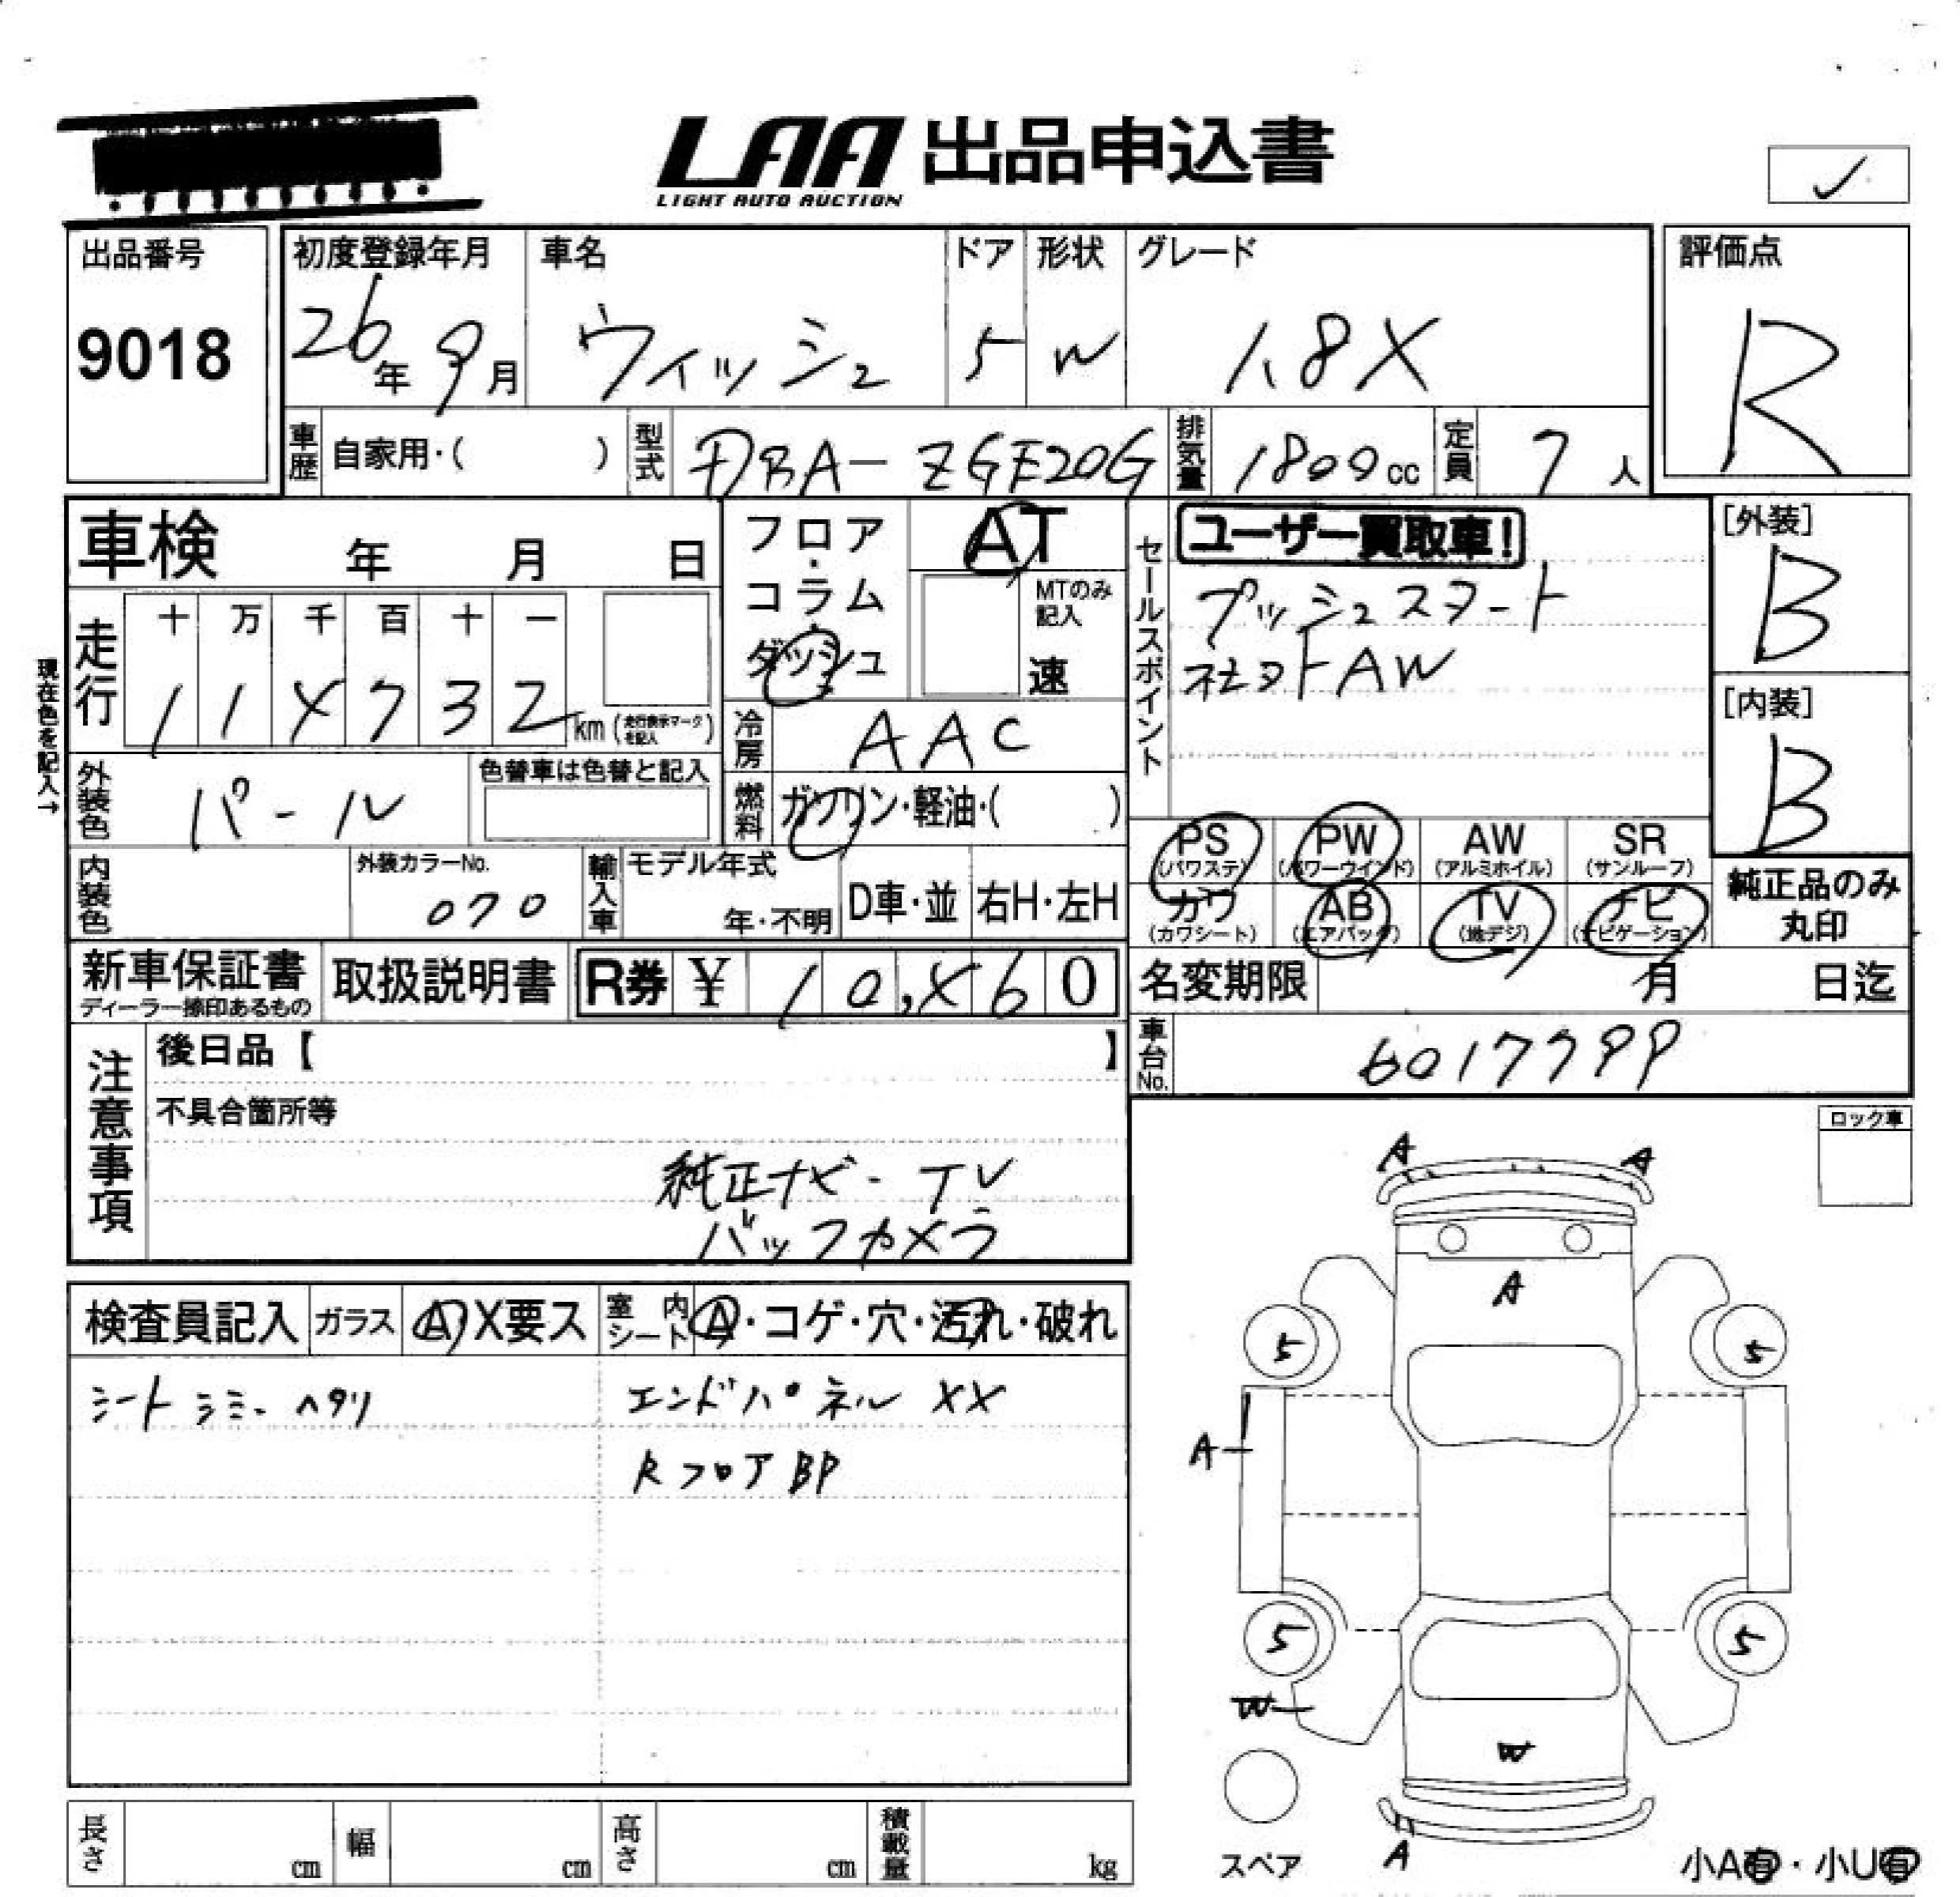 LAA 出品申込書
LIGHT AUTO AUCTION
出品番号
9018
初度登録年月
26年 9月
車名
ウィッシュ
ドア
5
形状
W
グレード
1.8X
評価点
R
車歴
自家用・( )
型式
DBA-ZGE20G
排気量
1800cc
定員
7人
車検 年 月 日
フロア・コラム・ダッシュ
AT
MTのみ記入
速
セールスポイント
ユーザー買取車!
プッシュスタート
社外AW
[外装]
B
[内装]
B
現在色を記入→
走行
十 万 千 百 十 一
1 1 4 7 3 2 km (走行表示マークを記入)
冷房
AAC
外装色
パール
色替車は色替と記入
燃料
ガソリン・軽油・( )
PS (パワステ)
PW (パワーウインド)
AW (アルミホイル)
SR (サンルーフ)
カワ (カワシート)
AB (エアバッグ)
TV (地デジ)
ナビ (ナビゲーション)
純正品のみ丸印
内装色
外装カラーNo.
070
輸入車
モデル年式
年・不明
D車・並
右H・左H
新車保証書
ディーラー捺印あるもの
取扱説明書
R券 ¥ 10,460
名変期限 月 日迄
車台No.
6017799
注意事項
後日品【 】
不具合箇所等
純正ナビ-TV
バックカメラ
ロック車
検査員記入
ガラス
A X要ス
室内シート
A・コゲ・穴・汚れ・破れ
シート シミ- ヘタリ
エンドパネル XX
Rフロア BP
A
A
A
5
5
A
5
5
W
W
A
スペア
小A有・小U有
長さ cm
幅 cm
高さ cm
積載量 kg